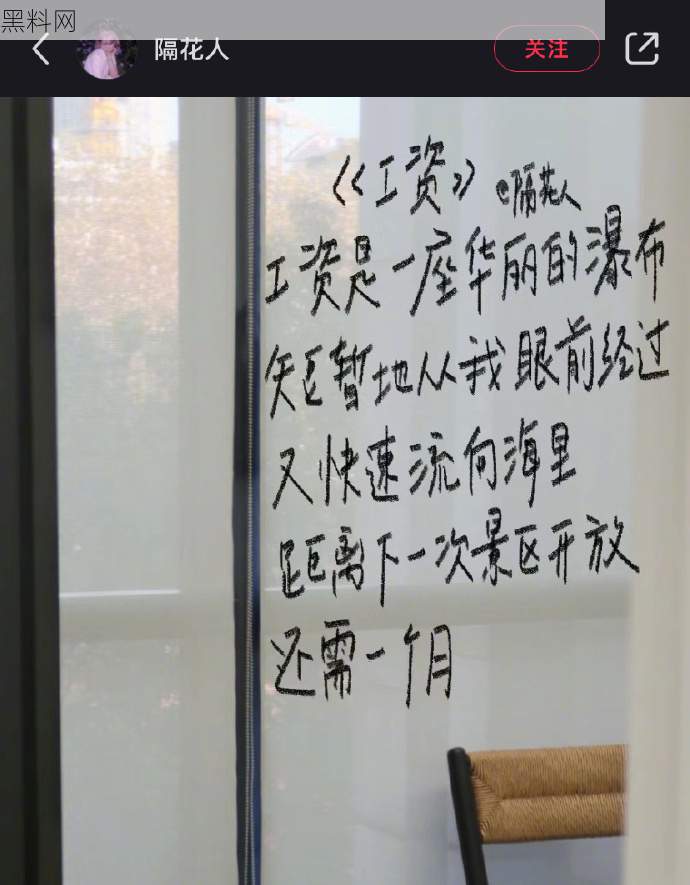 黑料网
隔花人
关注
《工资》 @隔花人
工资是一座华丽的瀑布
短暂地从我眼前经过
又快速流向海里
距离下一次景区开放
还需一个月